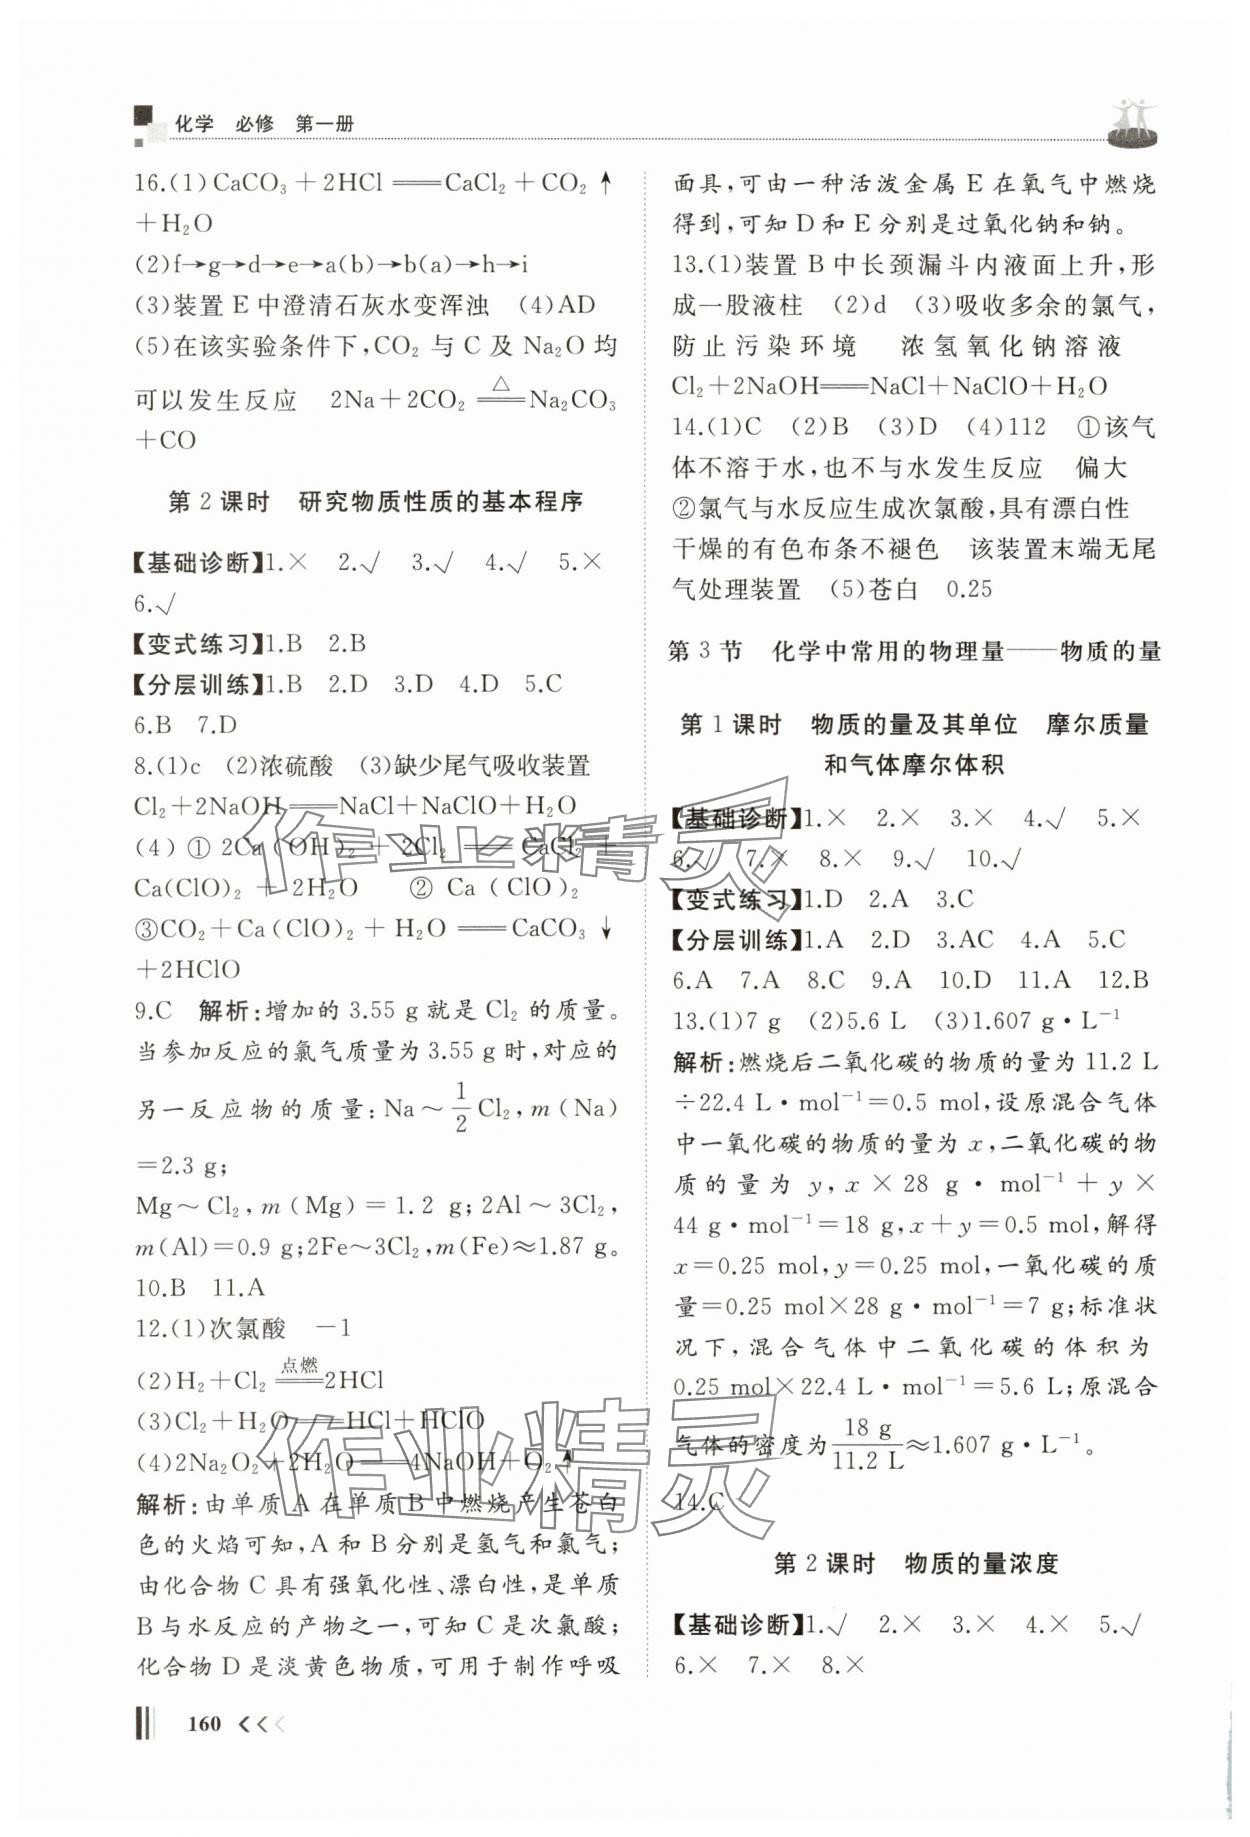 化学 必修 第一册
16.(1)CaCO₃+2HCl══CaCl₂+CO₂↑
+H₂O
(2)f→g→d→e→a(b)→b(a)→h→i
(3)装置 E 中澄清石灰水变浑浊 (4)AD
(5)在该实验条件下,CO₂ 与 C 及 Na₂O 均
可以发生反应 2Na+2CO₂ ══(△) Na₂CO₃
+CO
第 2 课时 研究物质性质的基本程序
【基础诊断】1.× 2.√ 3.√ 4.√ 5.×
6.√
【变式练习】1.B 2.B
【分层训练】1.B 2.D 3.D 4.D 5.C
6.B 7.D
8.(1)c (2)浓硫酸 (3)缺少尾气吸收装置
Cl₂+2NaOH══NaCl+NaClO+H₂O
(4)①2Ca(OH)₂+2Cl₂══CaCl₂+
Ca(ClO)₂+2H₂O ②Ca(ClO)₂
③CO₂+Ca(ClO)₂+H₂O══CaCO₃↓
+2HClO
9.C 解析:增加的 3.55 g 就是 Cl₂ 的质量。
当参加反应的氯气质量为 3.55 g 时,对应的
另一反应物的质量:Na~1/2 Cl₂,m(Na)
=2.3 g;
Mg~Cl₂,m(Mg)=1.2 g;2Al~3Cl₂,
m(Al)=0.9 g;2Fe~3Cl₂,m(Fe)≈1.87 g。
10.B 11.A
12.(1)次氯酸 −1
(2)H₂+Cl₂ ══(点燃) 2HCl
(3)Cl₂+H₂O══HCl+HClO
(4)2Na₂O₂+2H₂O══4NaOH+O₂↑
解析:由单质 A 在单质 B 中燃烧产生苍白
色的火焰可知,A 和 B 分别是氢气和氯气;
由化合物 C 具有强氧化性、漂白性,是单质
B 与水反应的产物之一,可知 C 是次氯酸;
化合物 D 是淡黄色物质,可用于制作呼吸
面具,可由一种活泼金属 E 在氧气中燃烧
得到,可知 D 和 E 分别是过氧化钠和钠。
13.(1)装置 B 中长颈漏斗内液面上升,形
成一股液柱 (2)d (3)吸收多余的氯气,
防止污染环境 浓氢氧化钠溶液
Cl₂+2NaOH══NaCl+NaClO+H₂O
14.(1)C (2)B (3)D (4)112 ①该气
体不溶于水,也不与水发生反应 偏大
②氯气与水反应生成次氯酸,具有漂白性
干燥的有色布条不褪色 该装置末端无尾
气处理装置 (5)苍白 0.25
第 3 节 化学中常用的物理量——物质的量
第 1 课时 物质的量及其单位 摩尔质量
和气体摩尔体积
【基础诊断】1.× 2.× 3.× 4.√ 5.×
6.√ 7.× 8.× 9.√ 10.√
【变式练习】1.D 2.A 3.C
【分层训练】1.A 2.D 3.AC 4.A 5.C
6.A 7.A 8.C 9.A 10.D 11.A 12.B
13.(1)7 g (2)5.6 L (3)1.607 g·L⁻¹
解析:燃烧后二氧化碳的物质的量为 11.2 L
÷22.4 L·mol⁻¹=0.5 mol,设原混合气体
中一氧化碳的物质的量为 x,二氧化碳的物
质的量为 y,x×28 g·mol⁻¹+y×
44 g·mol⁻¹=18 g,x+y=0.5 mol,解得
x=0.25 mol,y=0.25 mol,一氧化碳的质
量=0.25 mol×28 g·mol⁻¹=7 g;标准状
况下,混合气体中二氧化碳的体积为
0.25 mol×22.4 L·mol⁻¹=5.6 L;原混合
气体的密度为 18 g/11.2 L ≈1.607 g·L⁻¹。
14.C
第 2 课时 物质的量浓度
【基础诊断】1.√ 2.× 3.× 4.× 5.√
6.× 7.× 8.×
160
作业精灵
作业精灵